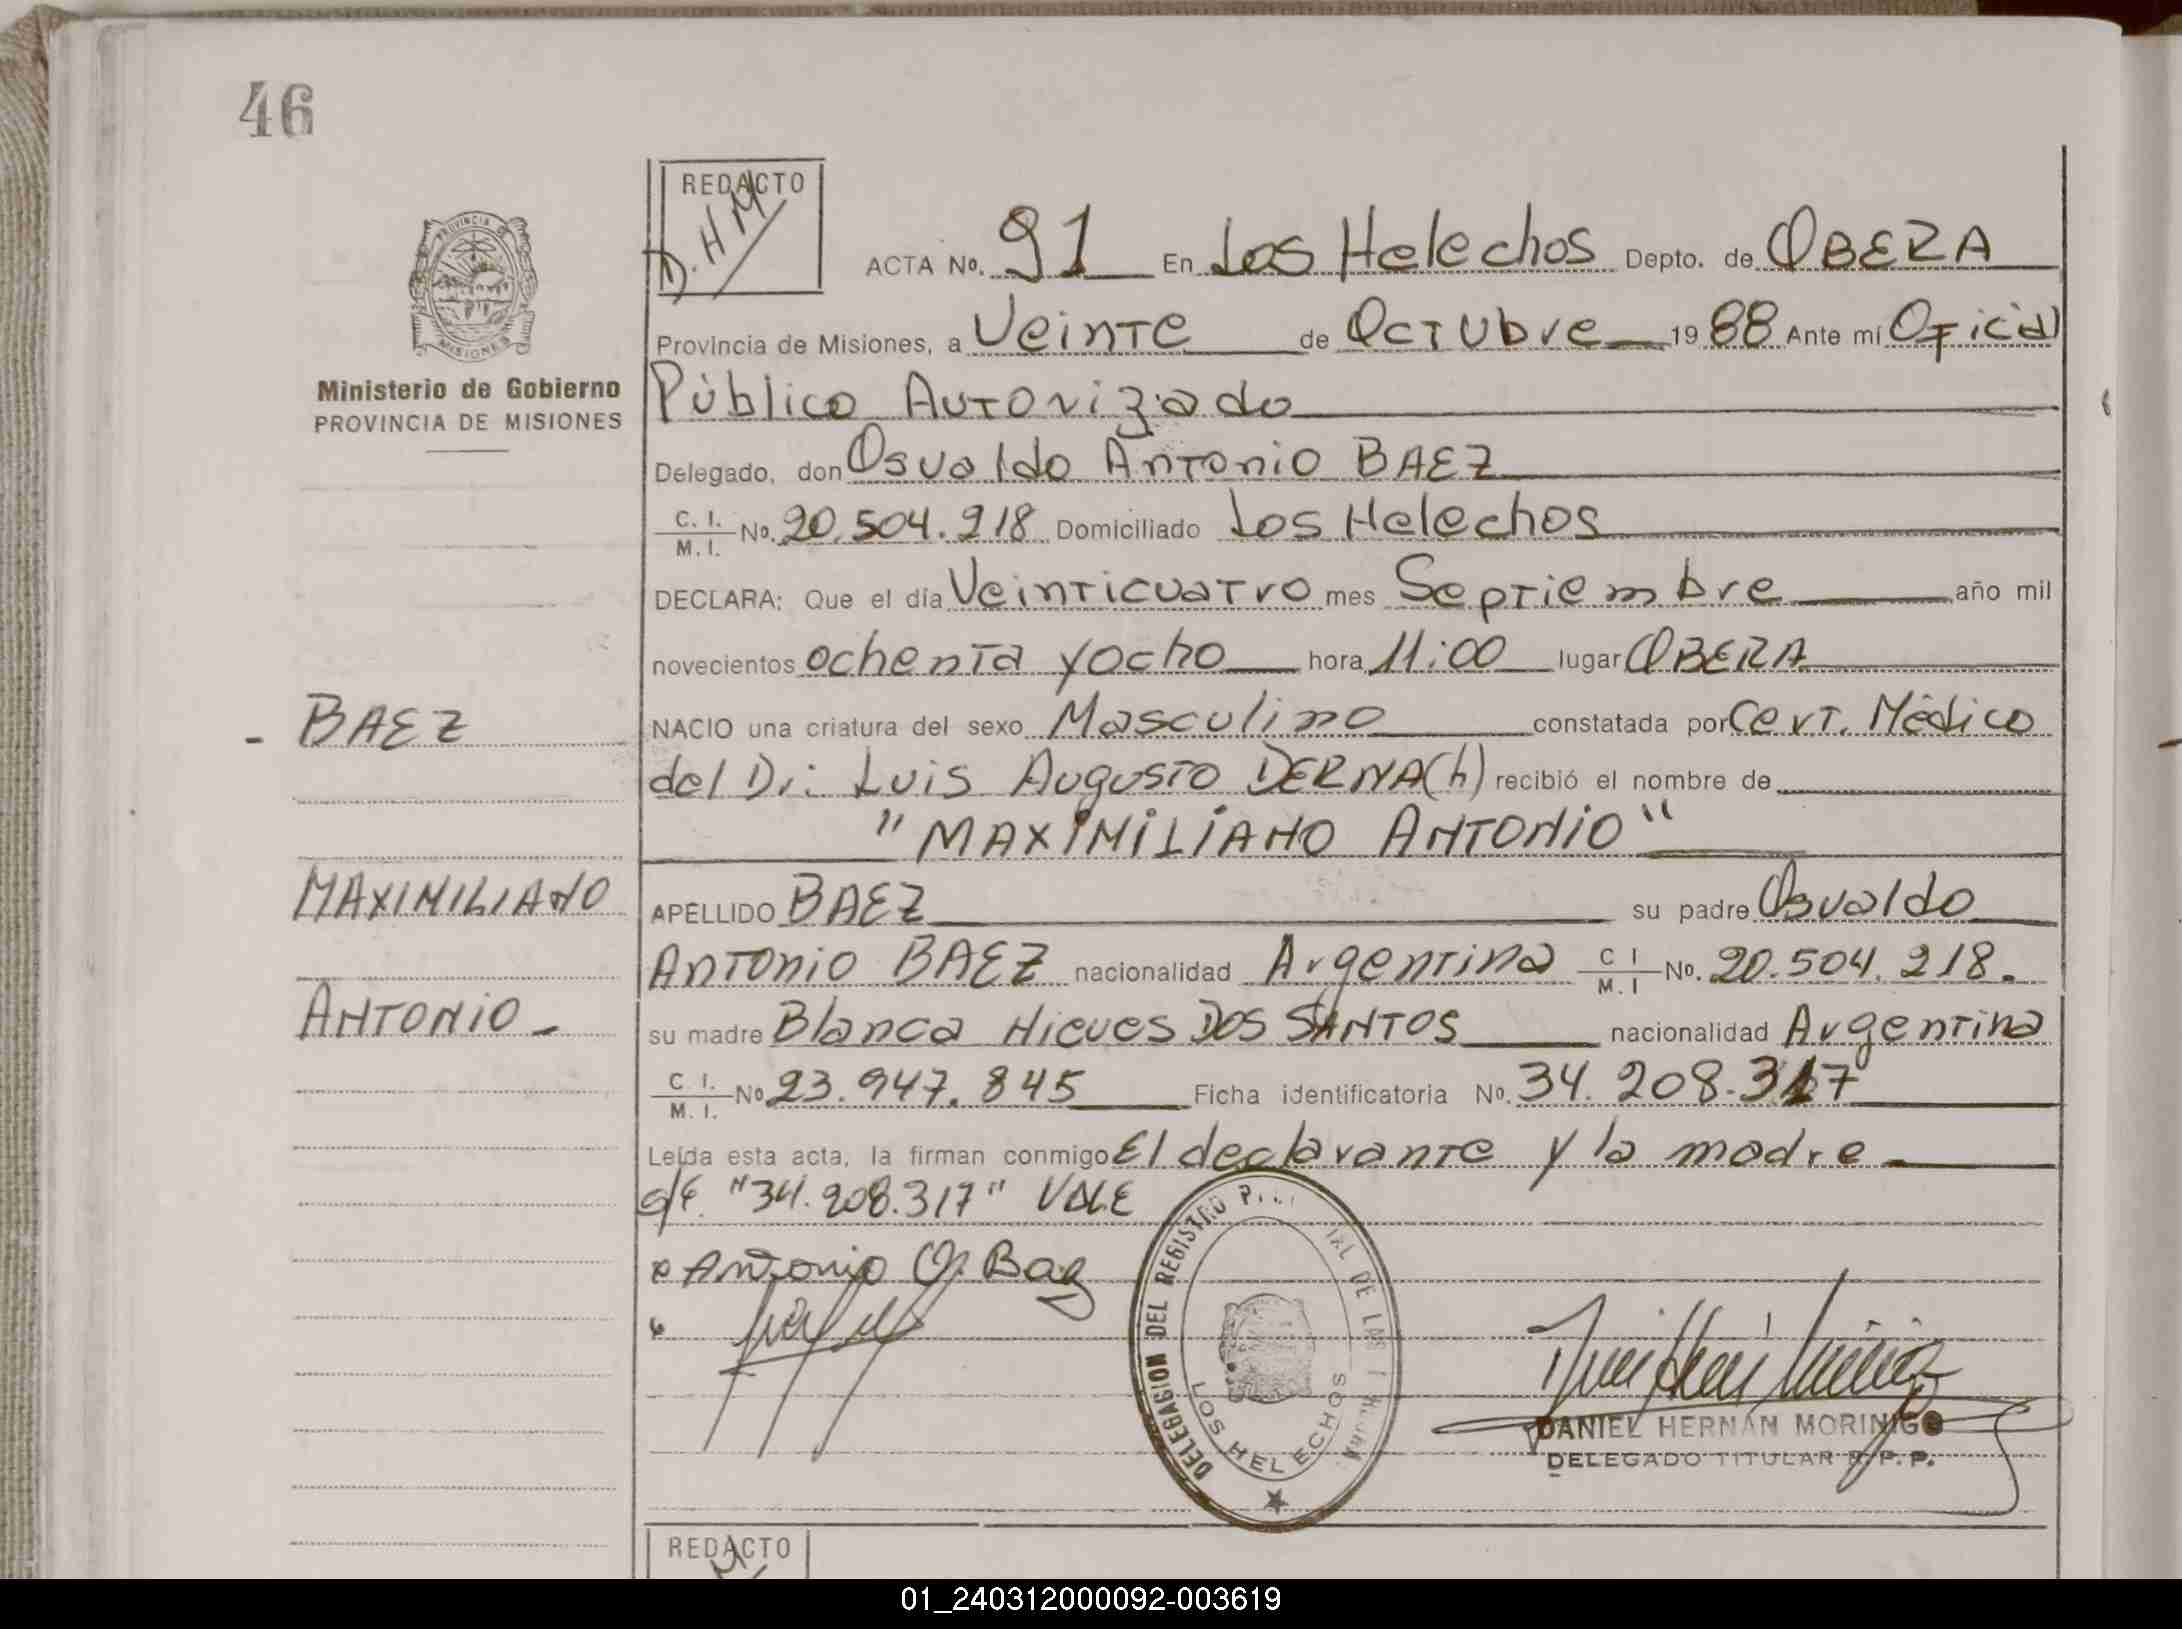 46
REDACTO
D.HM
ACTA No. 91 En Los Helechos Depto. de OBERA
Provincia de Misiones, a Veinte de Octubre 1988 Ante mi Oficial
Ministerio de Gobierno
PROVINCIA DE MISIONES
Público Autorizado
Delegado, don Osvaldo Antonio BAEZ
C. I. M. I. No. 20.504.218 Domiciliado Los Helechos
DECLARA: Que el día Veinticuatro mes Septiembre año mil
novecientos ochenta y ocho hora 11:00 lugar OBERA
- BAEZ
NACIO una criatura del sexo Masculino constatada por Cert. Médico
del Dr. Luis Augusto DERNA(h) recibió el nombre de
"MAXIMILIANO ANTONIO"
MAXIMILIANO
APELLIDO BAEZ su padre Osvaldo
Antonio BAEZ nacionalidad Argentina C I M. I No. 20.504.218.
ANTONIO -
su madre Blanca Nieves DOS SANTOS nacionalidad Argentina
C. I. M. I. No 23.947.845 Ficha identificatoria No. 34.208.317
Leída esta acta, la firman conmigo El declarante y la madre
"34.208.317" VALE
Antonio O. Baez
DELEGACION DEL REGISTRO DE LAS
LOS HELECHOS
DANIEL HERNAN MORINIGO
DELEGADO TITULAR R.P.P.
REDACTO
01_240312000092-003619
PROVINCIA
MISIONES